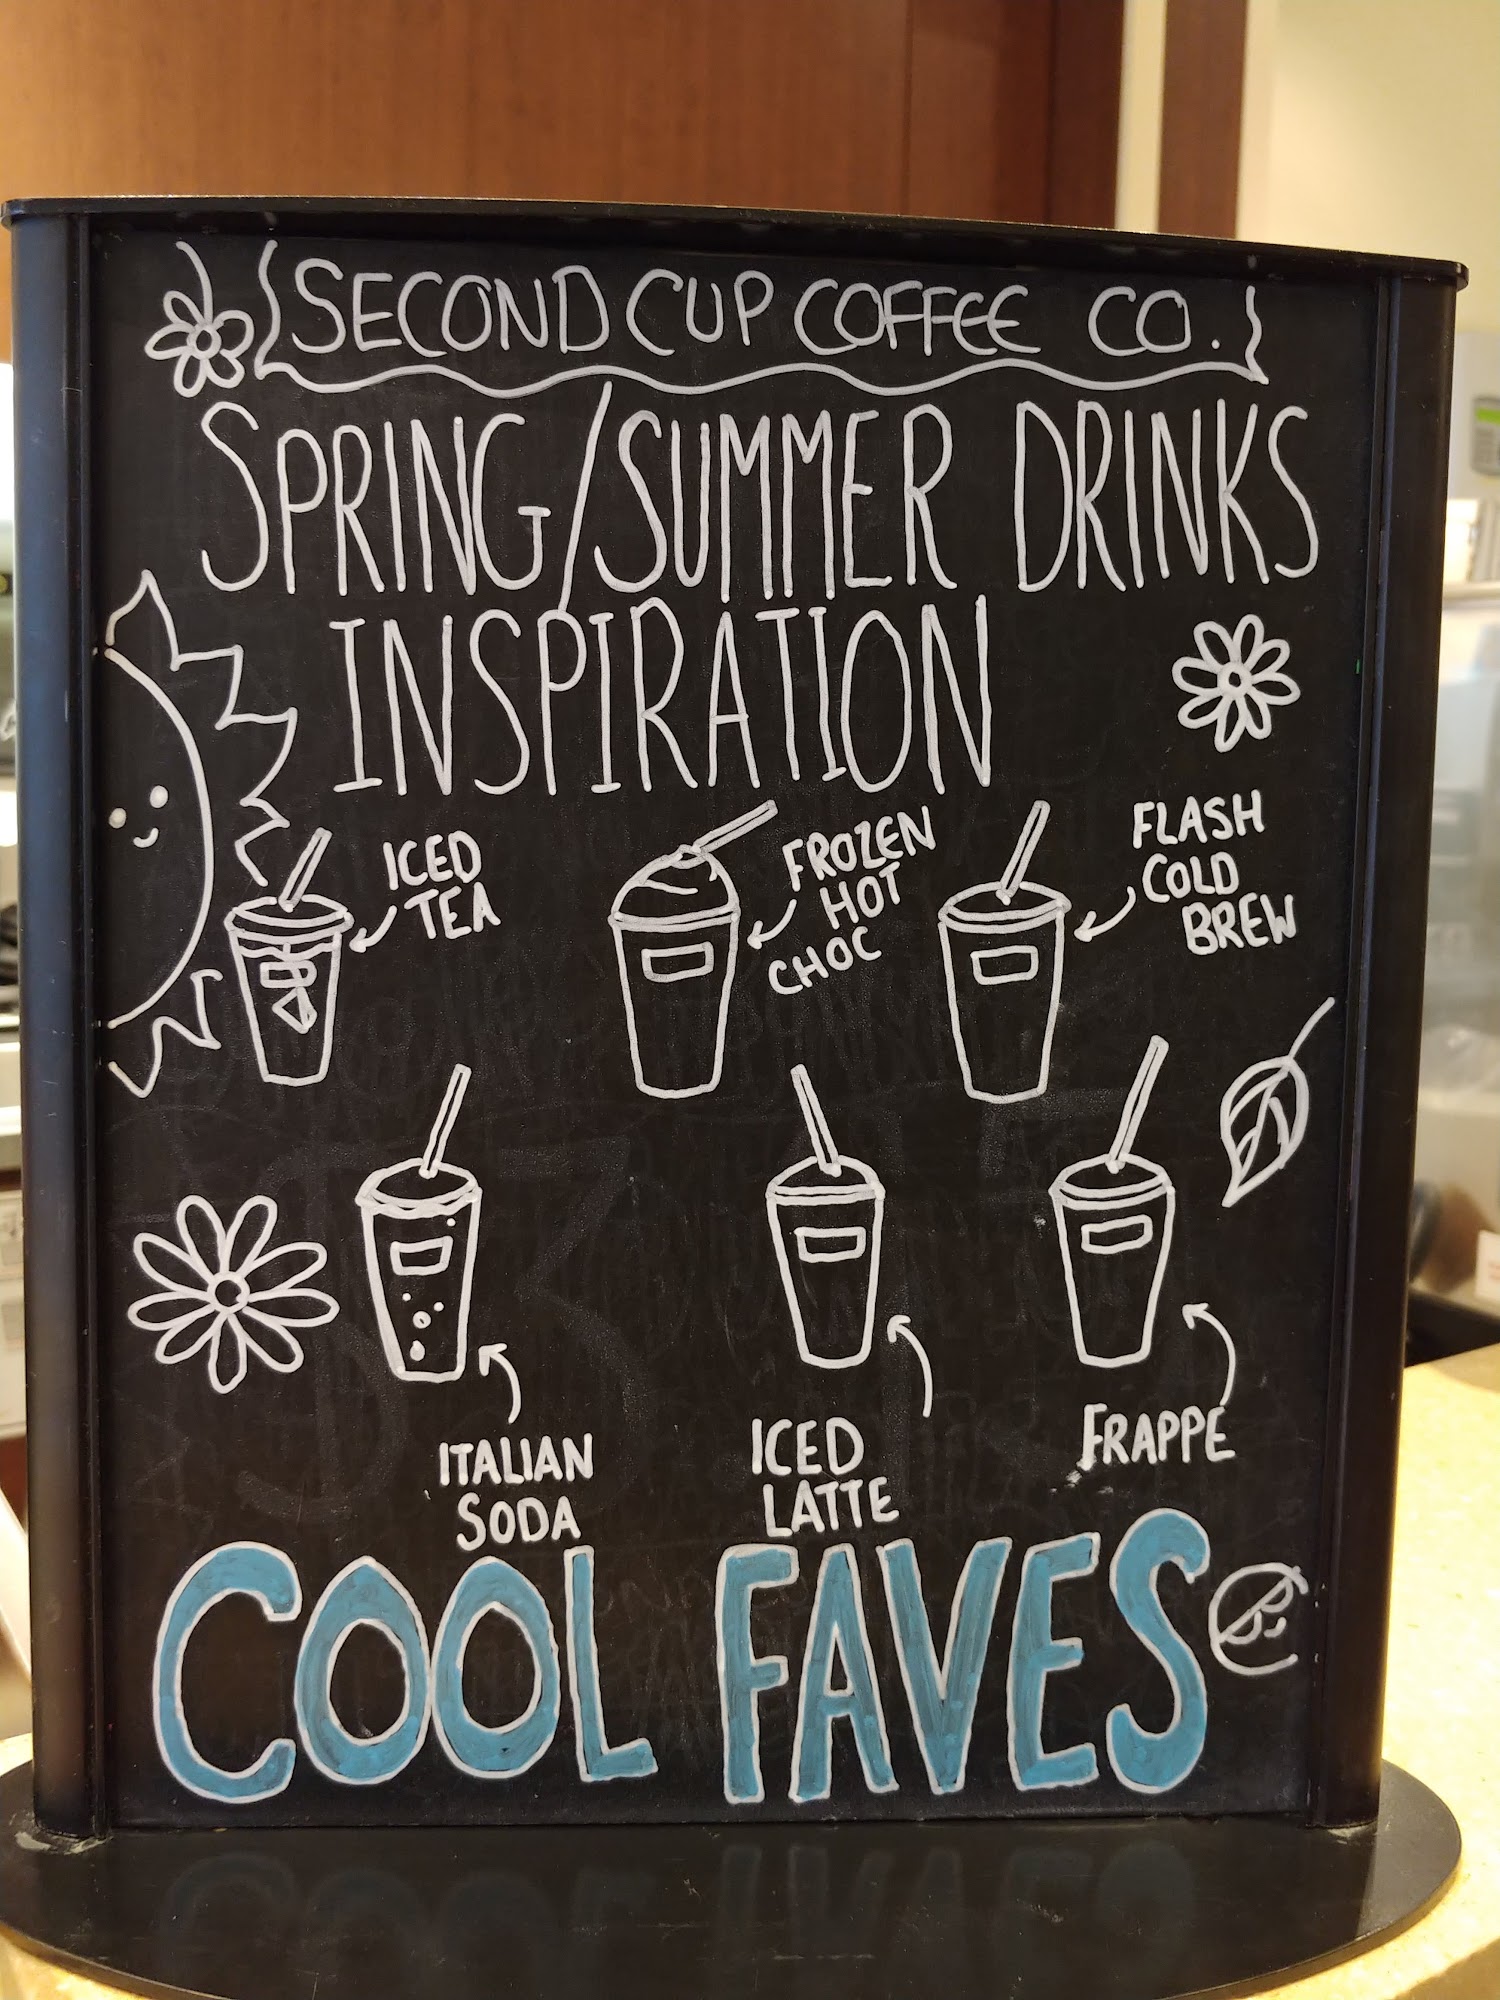 SECOND CUP COFFEE CO.
SPRING/SUMMER DRINKS
INSPIRATION
ICED
TEA
FROZEN
HOT
CHOC
FLASH
COLD
BREW
ITALIAN
SODA
ICED
LATTE
FRAPPE
COOL FAVES